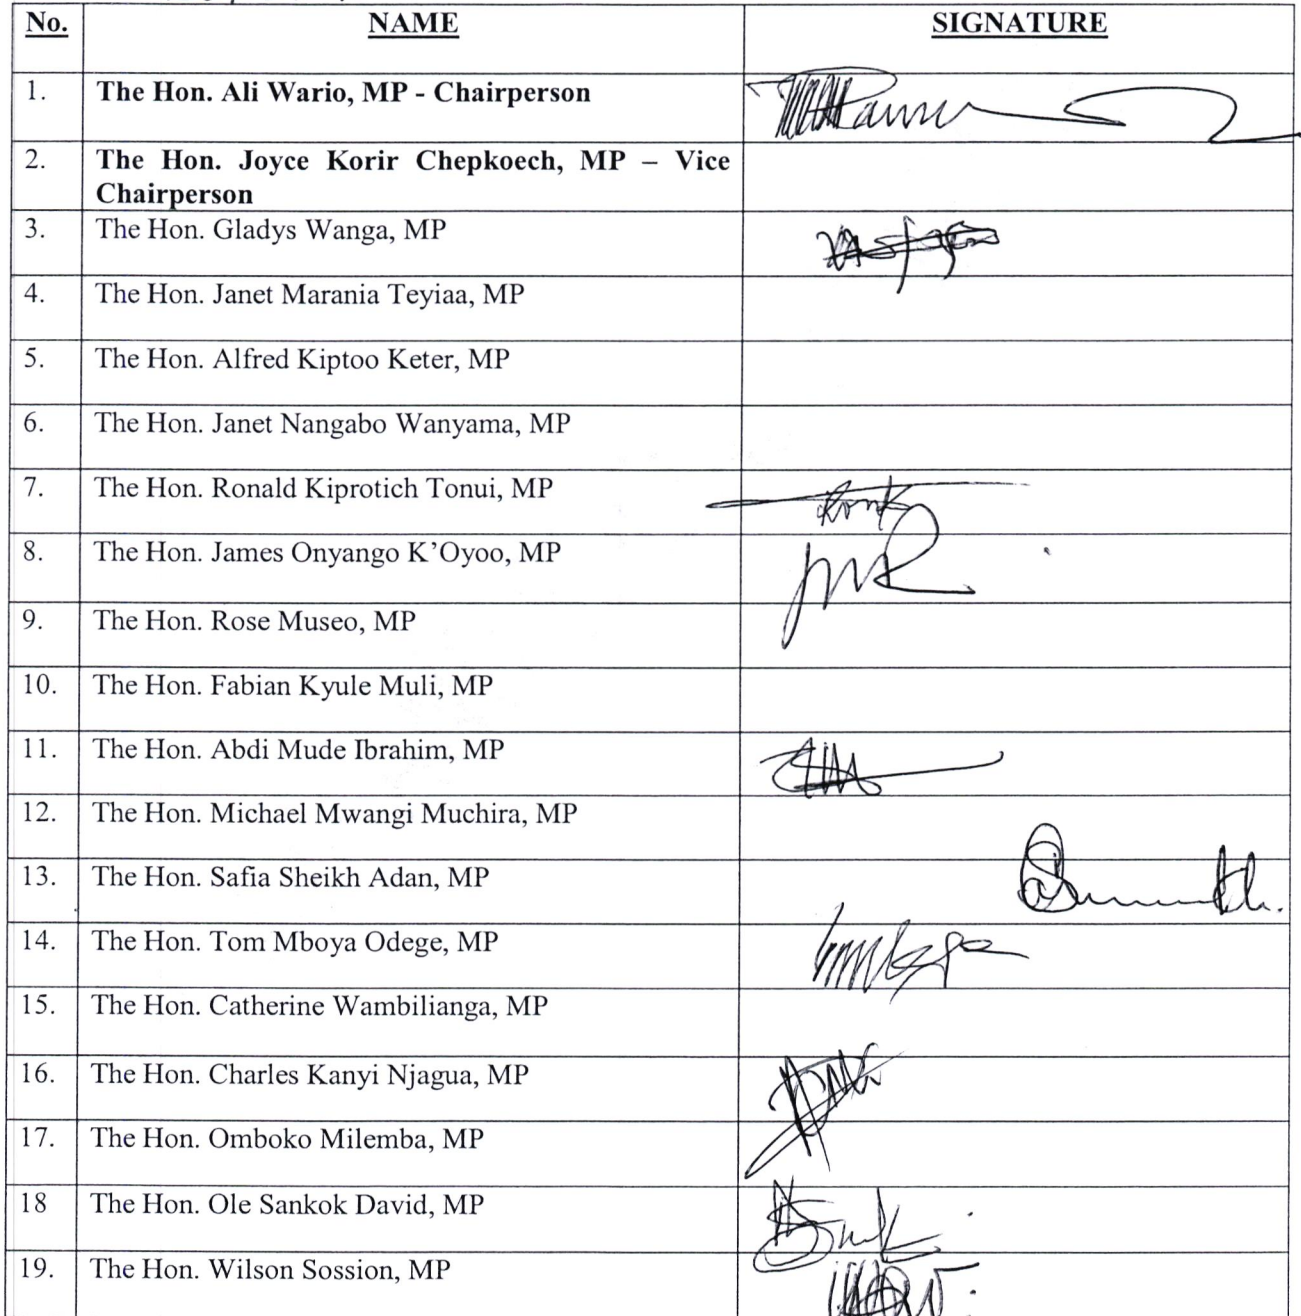 No. NAME SIGNATURE
1. The Hon. Ali Wario, MP - Chairperson
2. The Hon. Joyce Korir Chepkoech, MP – Vice
Chairperson
3. The Hon. Gladys Wanga, MP
4. The Hon. Janet Marania Teyiaa, MP
5. The Hon. Alfred Kiptoo Keter, MP
6. The Hon. Janet Nangabo Wanyama, MP
7. The Hon. Ronald Kiprotich Tonui, MP
8. The Hon. James Onyango K’Oyoo, MP
9. The Hon. Rose Museo, MP
10. The Hon. Fabian Kyule Muli, MP
11. The Hon. Abdi Mude Ibrahim, MP
12. The Hon. Michael Mwangi Muchira, MP
13. The Hon. Safia Sheikh Adan, MP
14. The Hon. Tom Mboya Odege, MP
15. The Hon. Catherine Wambilianga, MP
16. The Hon. Charles Kanyi Njagua, MP
17. The Hon. Omboko Milemba, MP
18 The Hon. Ole Sankok David, MP
19. The Hon. Wilson Sossion, MP